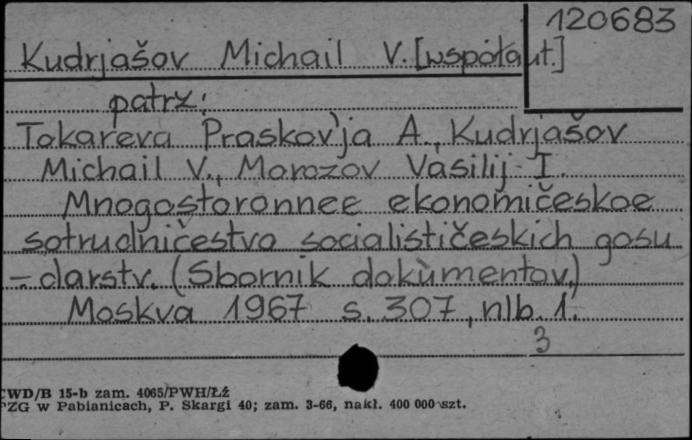 120683
Kudrjašov Michail V. [współaut.]
patrz:
Tokareva Praskov'ja A., Kudrjašov
Michail V., Morozov Vasilij I.
Mnogostoronnee ekonomičeskoe
sotrudničestvo socialističeskich gosu
-darstv. (Sbornik dokumentov.)
Moskva 1967 s. 307, nlb. 1.
3
CWD/B 15-b zam. 4065/PWH/Łź
PZG w Pabianicach, P. Skargi 40; zam. 3-66, nakł. 400 000 szt.